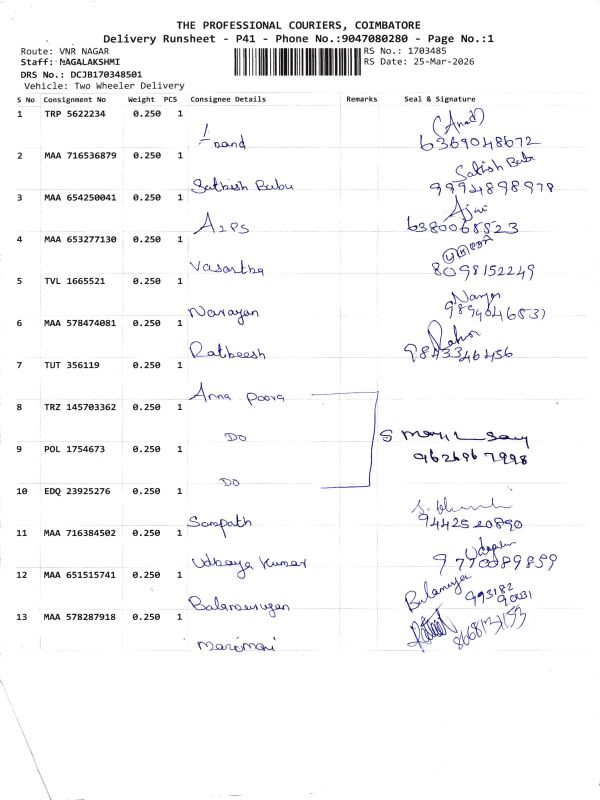 THE PROFESSIONAL COURIERS, COIMBATORE
Delivery Runsheet - P41 - Phone No.:9047080280 - Page No.:1
Route: VNR NAGAR
RS No.: 1703485
Staff: NAGALAKSHMI
RS Date: 25-Mar-2026
DRS No.: DCJB170348501
Vehicle: Two Wheeler Delivery
S No Consignment No Weight PCS Consignee Details Remarks Seal & Signature
1 TRP 5622234 0.250 1 (Anad)
Anand 6369048672
2 MAA 716536879 0.250 1 Satkish Babu
Sathish Babu 9994898978
3 MAA 654250041 0.250 1 Ajai
A2PS 6380068523
4 MAA 653277130 0.250 1
Vasantha 8098152249
5 TVL 1665521 0.250 1
Narayan 9894046831
6 MAA 578474081 0.250 1
Ratheesh 9843346456
7 TUT 356119 0.250 1
Anna Poora
8 TRZ 145703362 0.250 1
DO
9 POL 1754673 0.250 1 9626967998
DO
10 EDQ 23925276 0.250 1
Sampath 9442520890
11 MAA 716384502 0.250 1
Udhaya Kumar 9770089859
12 MAA 651515741 0.250 1 Balamuruga 993182
Balamurugan 90031
13 MAA 578287918 0.250 1
8668131153